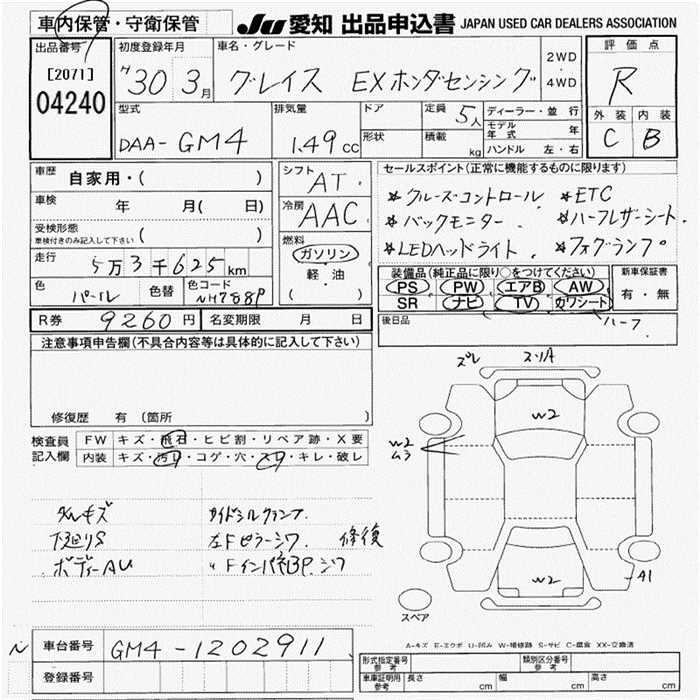 車内保管・守衛保管
JU 愛知 出品申込書 JAPAN USED CAR DEALERS ASSOCIATION
出品番号
[2071]
04240
初度登録年月
H30 3月
車名・グレード
グレイス EXホンダセンシング
2WD
・
4WD
評価点
R
外装 内装
C B
型式
DAA- GM4
排気量
1.49cc
ドア
形状
定員 5人
積載 kg
ディーラー・並行
モデル年式 年
ハンドル 左・右
車歴 自家用・( )
車検 年 月( 日)
受検形態
車検付きのみ記入して下さい ( )
走行 5万3千625km
色 パール 色替 色コード NH788P
シフト AT
冷房 AAC
燃料
ガソリン
軽・油
( )
セールスポイント(正常に機能するものに限ります)
★クルーズコントロール ★ETC
★バックモニター ★ハーフレザーシート
★LEDヘッドライト ★フォグランプ
装備品(純正品に限り○をつけてください)
PS PW エアB AW
SR ナビ TV カワシート
ハーフ
新車保証書
有・無
R券 9260円 名変期限 月 日
後日品
注意事項申告欄(不具合内容等は具体的に記入して下さい)
修復歴 有(箇所 )
検査員記入欄
FW キズ・飛石・ヒビ割・リペア跡・X要
内装 キズ・汚レ・コゲ・穴・スレ・キレ・破レ
ズレ スソA
W2
W2
ムラ
W2
A1
スペア
下廻りS 左Fピラーシワ 修復
ボディーAU 〃FインパネBP.シワ
A-キズ E-エクボ U-凹み W-補修跡 S-サビ C-腐食 XX-交換済
N
車台番号 GM4-1202911
登録番号
形式指定番号
参考
類別区分番号
参考
車庫証明用
参考
長さ cm 幅 cm 高さ cm